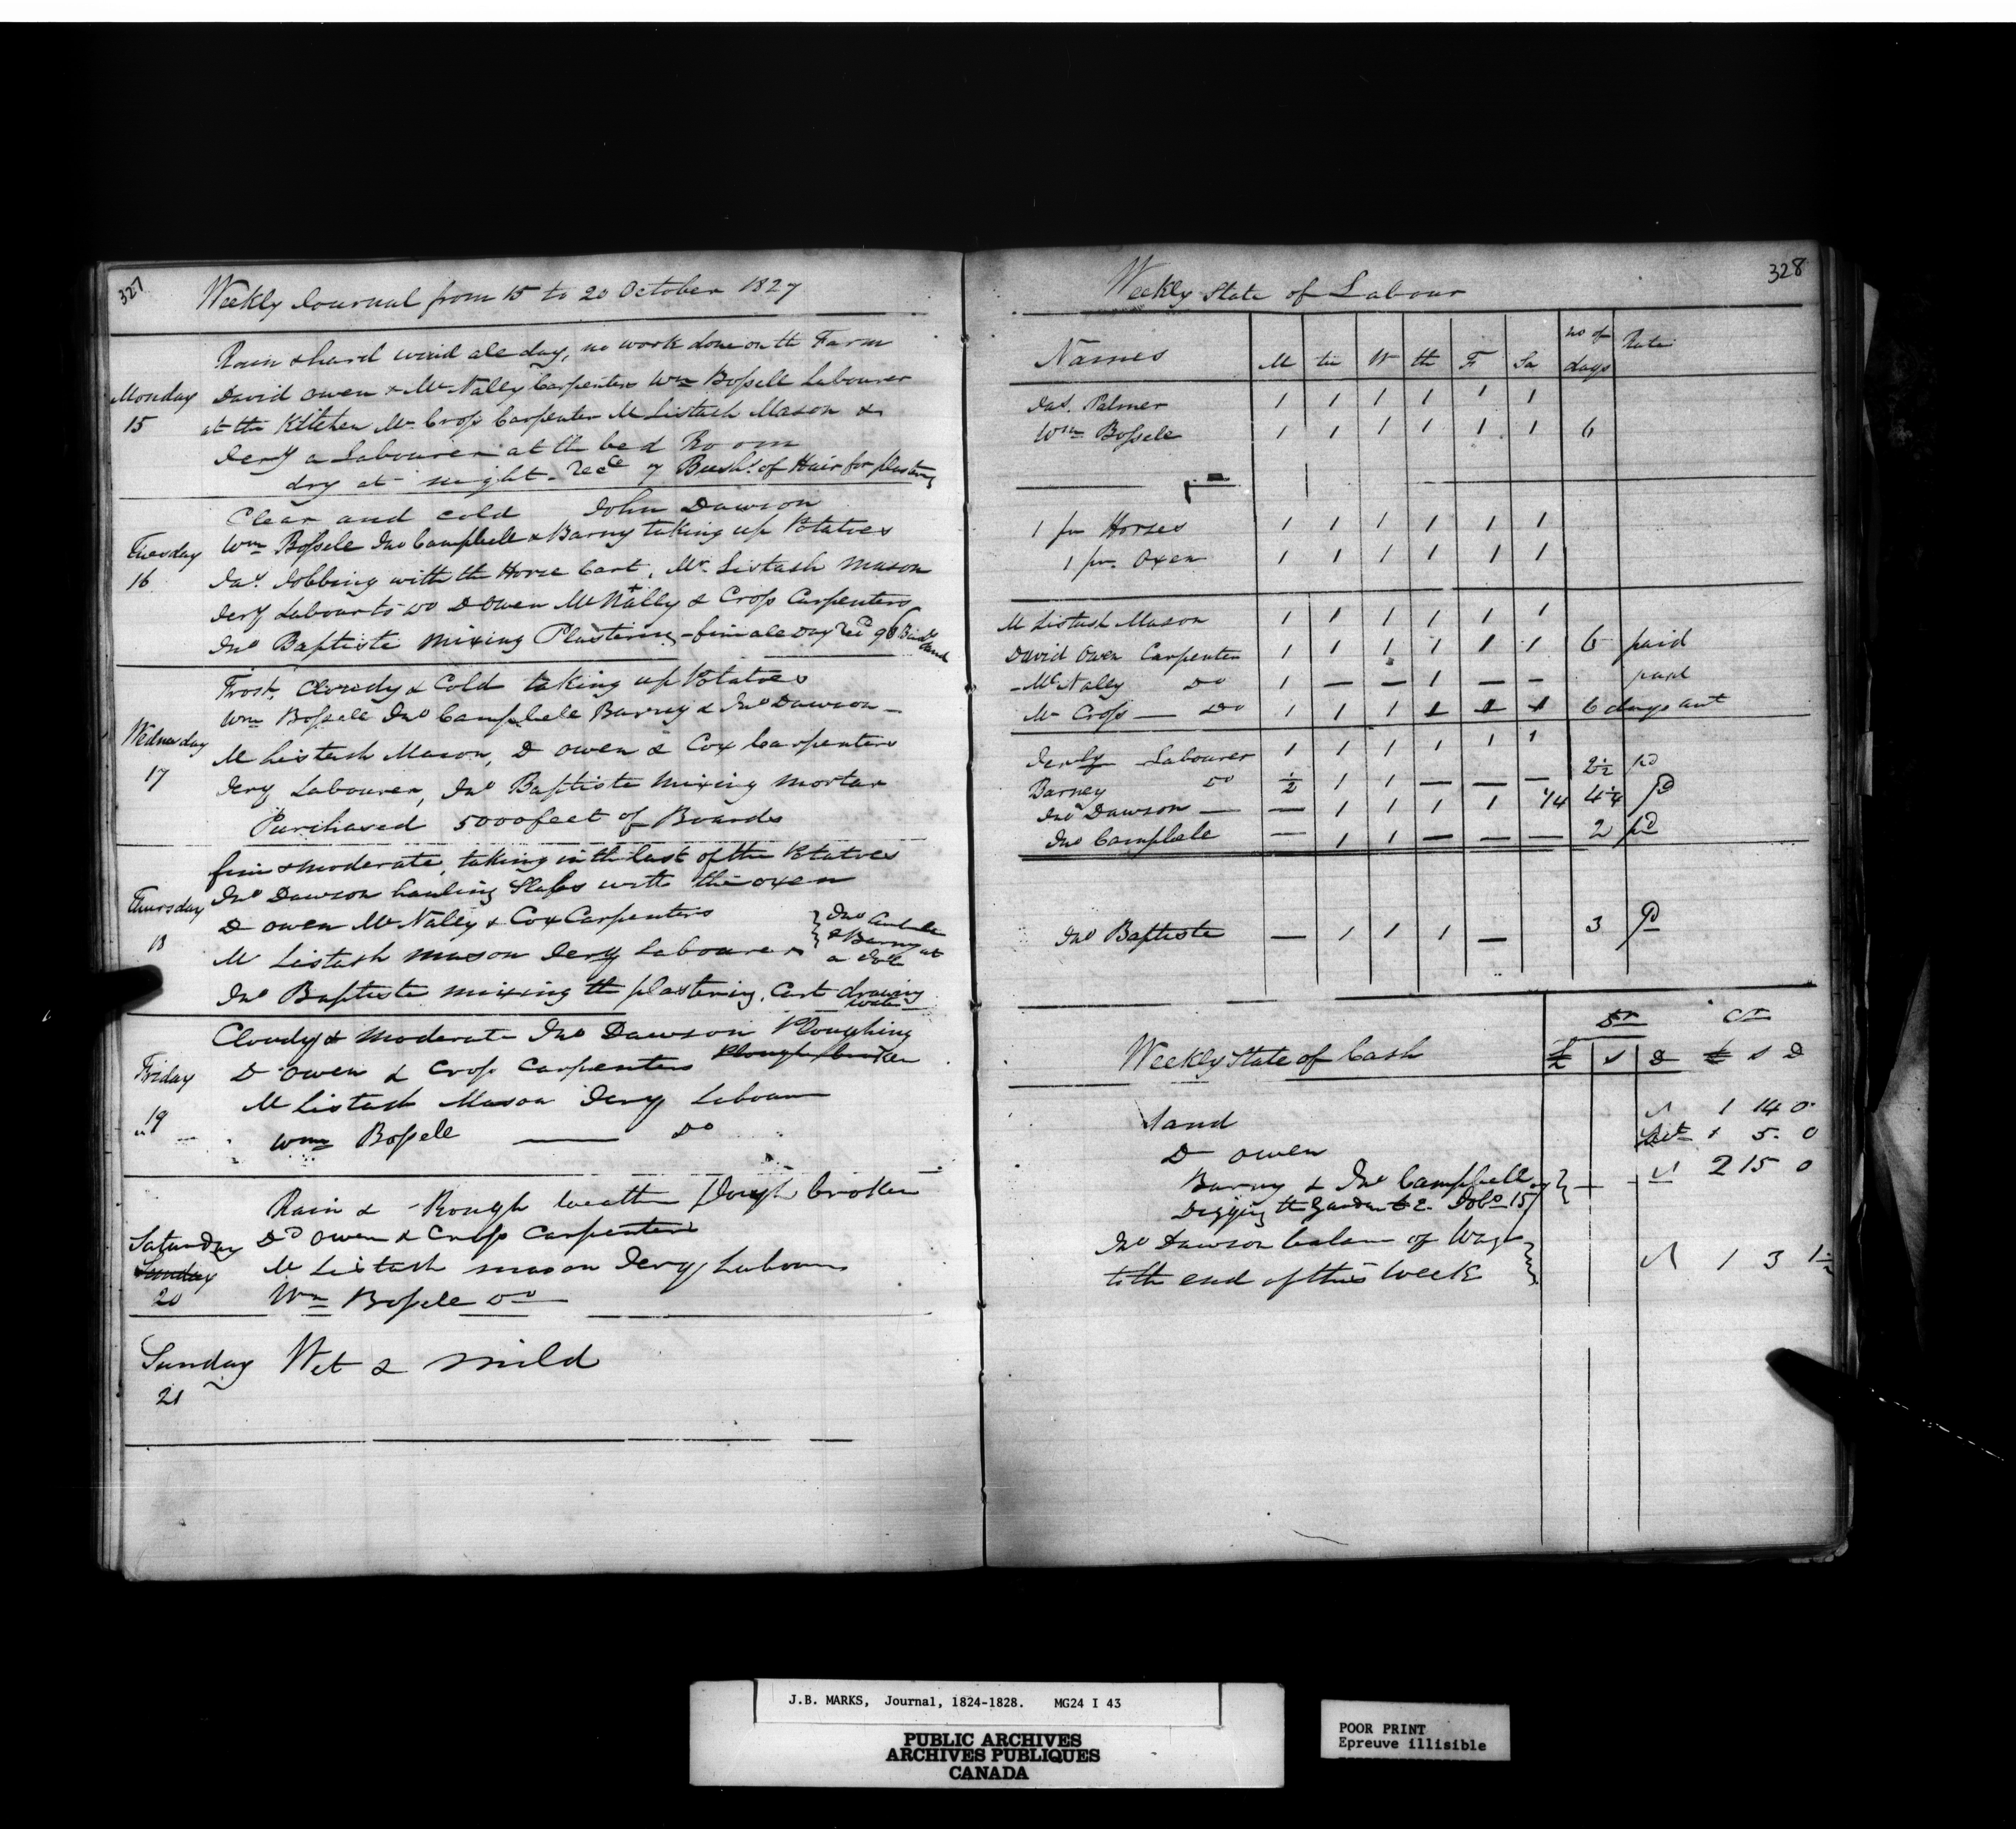 327
Weekly Journal from 15 to 20 October 1827
Monday
15
Rain & hard wind all day, no work done on the Farm
David Owen & Mc Nally Carpenters Wm Bossele Labourer
at the Kitchen Mr Cross Carpenter M Listash Mason &
Jery a Labourer at the bed Room
dry at night. Recd 7 Bushs of Hair for plastering
Tuesday
16
Clear and cold John Dawson
Wm Bossele Jno Campbell & Barny taking up Potatoes
Jas Jobbing with the Horse Cart, Mr Listash Mason
Jery Labour to do D Owen Mc Nally & Cross Carpenters
Jno Baptiste mixing Plastering - fine all day Recd 96 Sand
Wednesday
17
Frost, Cloudy & Cold taking up Potatoes
Wm Bossele Jno Campbele Barney & Jno Dawson -
M Listash Mason, D Owen & Cox Carpenters
Jery Labourer, Jno Baptiste mixing mortar
Purchased 5000 feet of Boards
Thursday
18
fine & moderate, taking in the last of the Potatoes
Jno Dawson hauling Slabs with the oxen
D Owen Mc Nally & Cox Carpenters
M Listash mason Jery Labourer
Jno
& Barny at
a
Jno Baptiste mixing the plastering. Cart drawing
water
Friday
19
Cloudy & Moderate Jno Dawson Ploughing
D Owen & Cross Carpenters Plough broken
M Listash Mason Jery Labour
Wm Bossele Do
Saturday
Sunday
20
Rain & Rough weather plough broken
Dd Owen & Cross Carpenters
M Listash mason Jery Labourer
Wm Bossele Do
Sunday
21
Wet & mild
328
Weekly State of Labour
Names M tu W th F Sa no of days Rate
Jas. Palmer 1 1 1 1 1 1
Wm Bossele 1 1 1 1 1 1 6
1 pr Horses 1 1 1 1 1 1
1 pr. Oxen 1 1 1 1 1 1
M Listash Mason 1 1 1 1 1 1
David Owen Carpenter 1 1 1 1 1 1 6 paid
Mc Nally Do 1 — — 1 — — paid
Mr Cross — Do 1 1 1 1 1 1 6 days
Jerly Labourer 1 1 1 1 1 1
Barney Do ½ 1 1 — — — 2½ pd
Jno Dawson — — 1 1 1 1 1/4 4¼ pd
Jno Campbele — 1 1 — — — 2 pd
Jno Baptiste — 1 1 1 — 3 pd
Weekly State of Cash
Dr Cr
£ s D £ s D
Sand 1 14 0
D Owen 5 0
Barny & Jno Campbell
Digging the Garden 2 15 0
Jno Dawson balance of Wages
to the end of this Week 1 3 1½
J.B. MARKS, Journal, 1824-1828. MG24 I 43
PUBLIC ARCHIVES
ARCHIVES PUBLIQUES
CANADA
POOR PRINT
Epreuve illisible